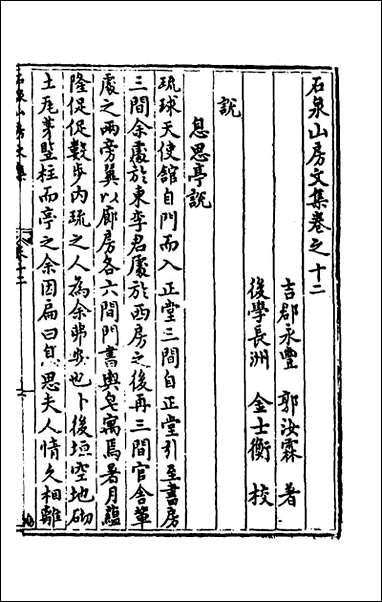 石泉山房文集卷之十二
吉郡永豐 郭汝霖 著
後學長洲 金士衡 校
說
息思亭說
琉球天使館自門而入正堂三間自正堂引至書房
三間余處於東李君處於西房之後再三間官舍輩
處之兩旁翼以廊房各六間門書輿皂寓焉暑月蘊
隆促促數步內疏之人為余弗安也卜後垣空地砌
土瓦茅豎柱而亭之余因扁曰息思夫人情久相離
石泉山房文集
卷十二